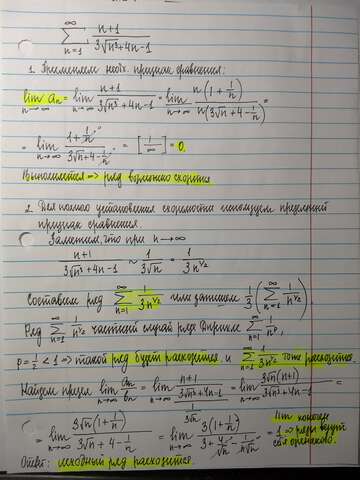 ∞
∑ n+1 / 3√n³+4n-1
n=1
1. Применяем необх. признак сравнения:
lim aₙ = lim n+1 / 3√n³+4n-1 = lim n(1+1/n) / n(3√n+4-1/n) =
n→∞ n→∞ n→∞
= lim 1+1/n→0 / 3√n+4-1/n→0 = [1/∞] = 0.
n→∞
Выполняется => ряд возможно сходится
2. Для полного установления сходимости используем предельный
признак сравнения.
Заметим, что при n→∞
n+1 / 3√n³+4n-1 ~ 1/3√n = 1/3n^1/2
Составим ряд ∑ n=1 ∞ 1/3n^1/2 или запишем 1/3(∑ n=1 ∞ 1/n^1/2).
Ряд ∑ n=1 ∞ 1/n^1/2 частный случай ряда Дирихле ∑ n=1 ∞ 1/n^p,
p=1/2<1 => такой ряд будет расходится и ∑ n=1 ∞ 1/3n^1/2 тоже расходится.
Найдем предел lim n→∞ aₙ/bₙ = lim n→∞ (n+1 / 3√n³+4n-1) / (1/3√n) = lim n→∞ 3√n(n+1) / 3√n³+4n-1 =
= lim n→∞ 3√n(1+1/n) / 3√n+4-1/n = lim n→∞ 3(1+1/n) / 3+4/√n-1/n√n = 1 => ряды ведут
lim конечен
себя одинаково.
Ответ: исходный ряд расходится.